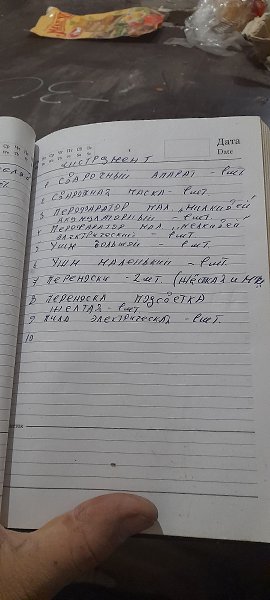 Дата
Date
инструмент
1 Сварочный апарат - 1 шт.
2 Сварочная маска - 1 шт.
3 Перофаратор мал.
акамуляторный - 1 шт.
4 Перофаратор мал.
электрический - 1 шт.
5 Ушм большой - 1 шт.
6 Ушм маленький - 1 шт.
7 Переноски - 2 шт. (жёстая и
8 Переноска подсветка
желтая - 1 шт.
9 Пила электрическая - 1 шт.
10